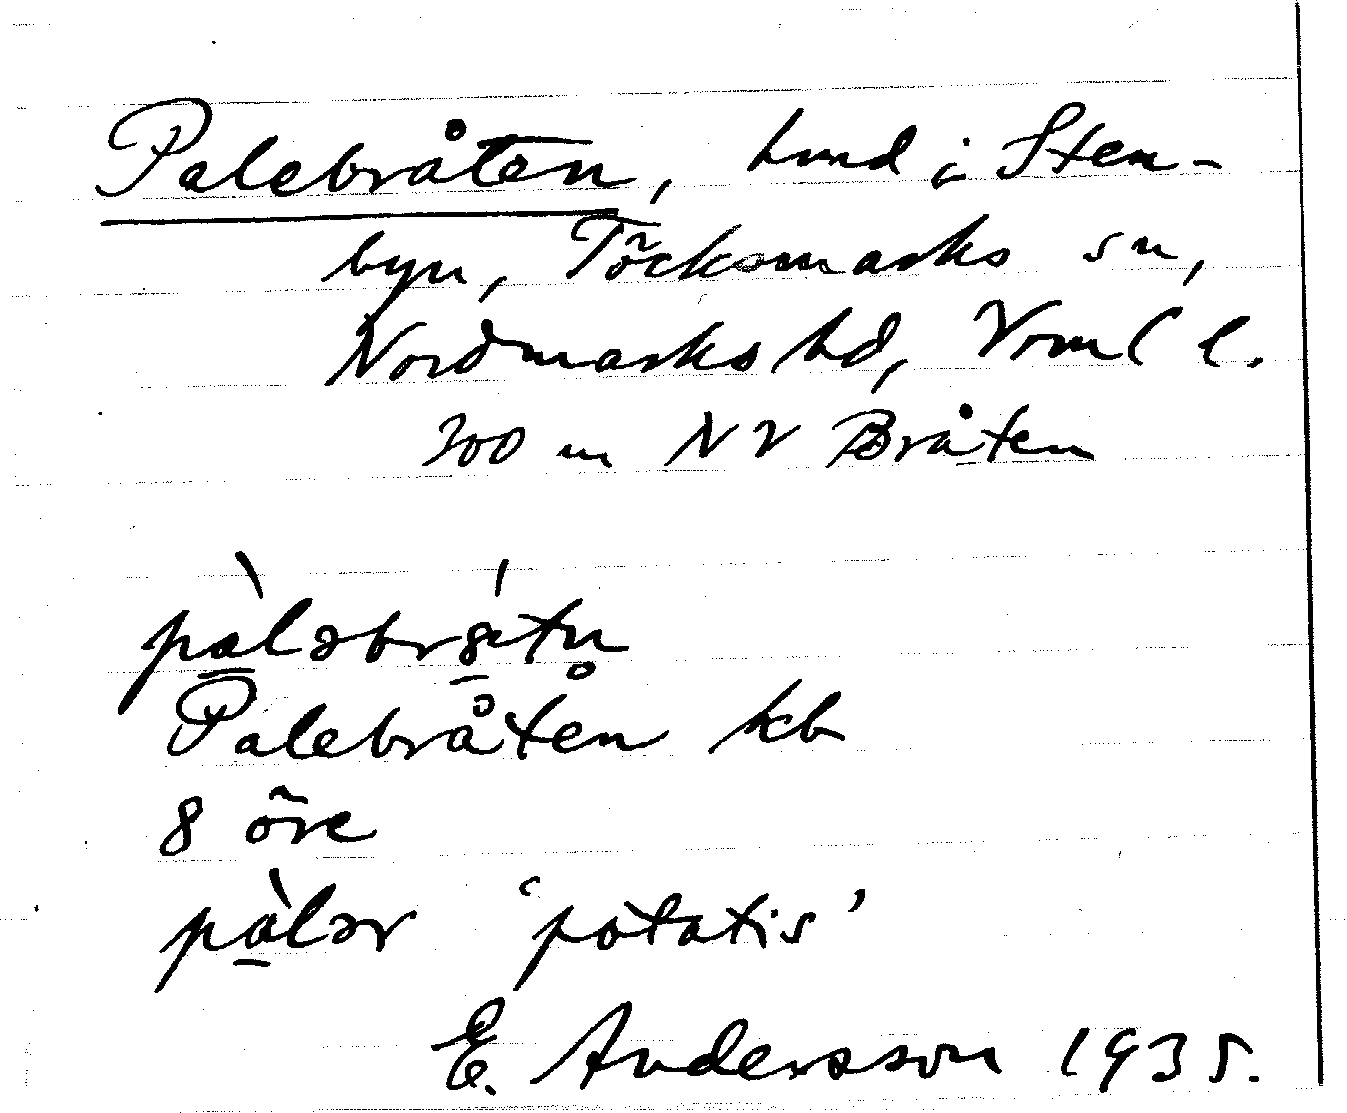 Palebråten, hmd i Sten-
byn, Töcksmarks sn,
Nordmarks hd, Värml l.
300 m NV Bråten
Palebråten kb
8 öre
pàlər 'potatis'
E. Andersson 1935.